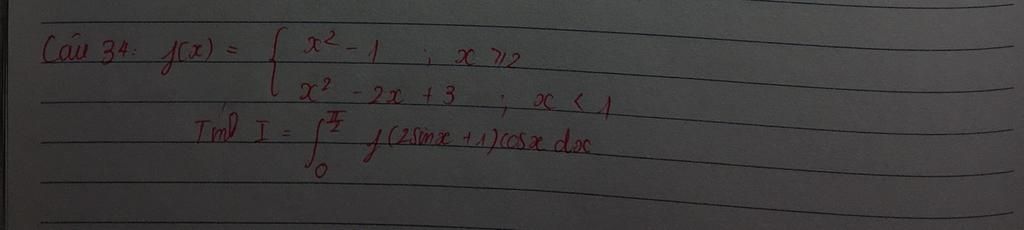 Câu 34: f(x) = { x² - 1 ; x ≥ 2
x² - 2x + 3 ; x < 1
Tính I = ∫₀^(π/2) f(2sinx + 1)cosx dx